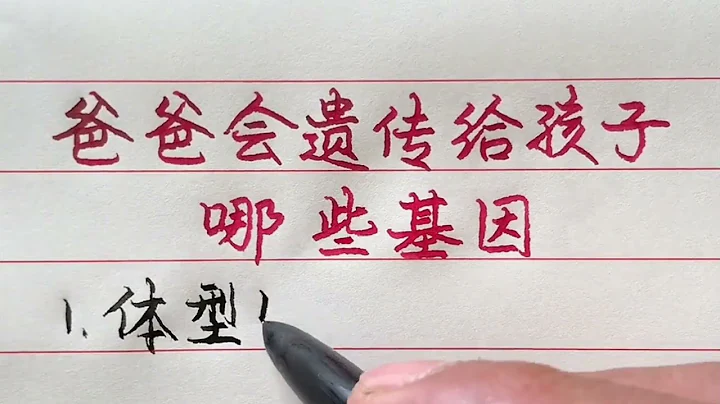 爸爸会遗传给孩子
哪些基因
1.体型